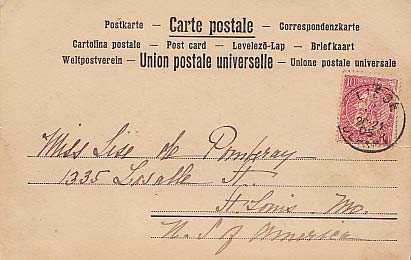 Postkarte — Carte postale — Correspondenzkarte
Cartolina postale — Post card — Levelező-Lap — Briefkaart
Weltpostverein — Union postale universelle — Unione postale universale
10
Miss Lise de Pomferay
1335 Lasalle St.
St Louis Mo.
U S of America